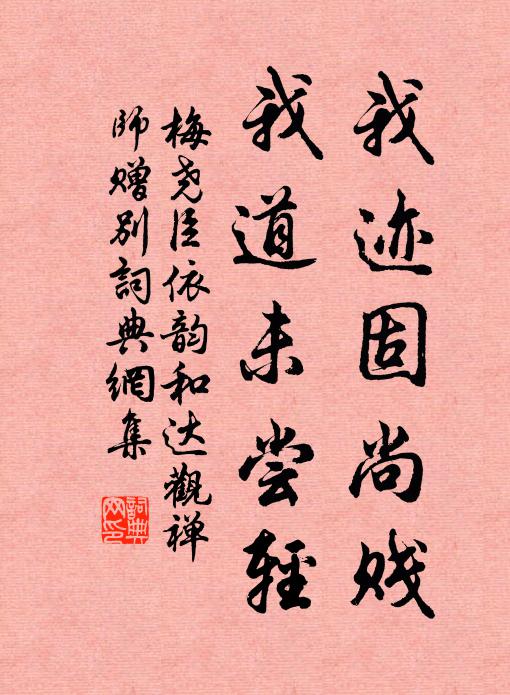 我迹固尚贱
我道未尝轻
梅尧臣依韵和达觀禅
师赠别詞典網集
詞典网印